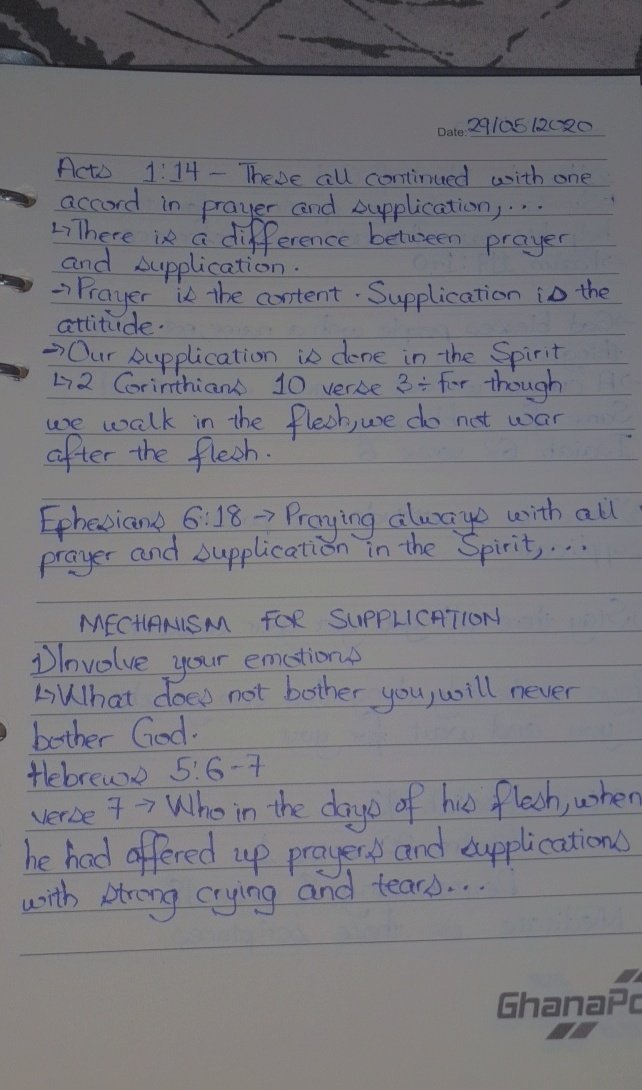 Date: 29/05/2020
Acts 1:14 - These all continued with one
accord in prayer and supplication,...
↳There is a difference between prayer
and supplication.
→Prayer is the content. Supplication is the
attitude.
→Our supplication is done in the Spirit
↳2 Corinthians 10 verse 3÷ for though
we walk in the flesh, we do not war
after the flesh.
Ephesians 6:18 → Praying always with all
prayer and supplication in the Spirit,...
MECHANISM FOR SUPPLICATION
1) Involve your emotions
↳What does not bother you, will never
bother God.
Hebrews 5:6-7
verse 7 → Who in the days of his flesh, when
he had offered up prayers and supplications
with strong crying and tears...